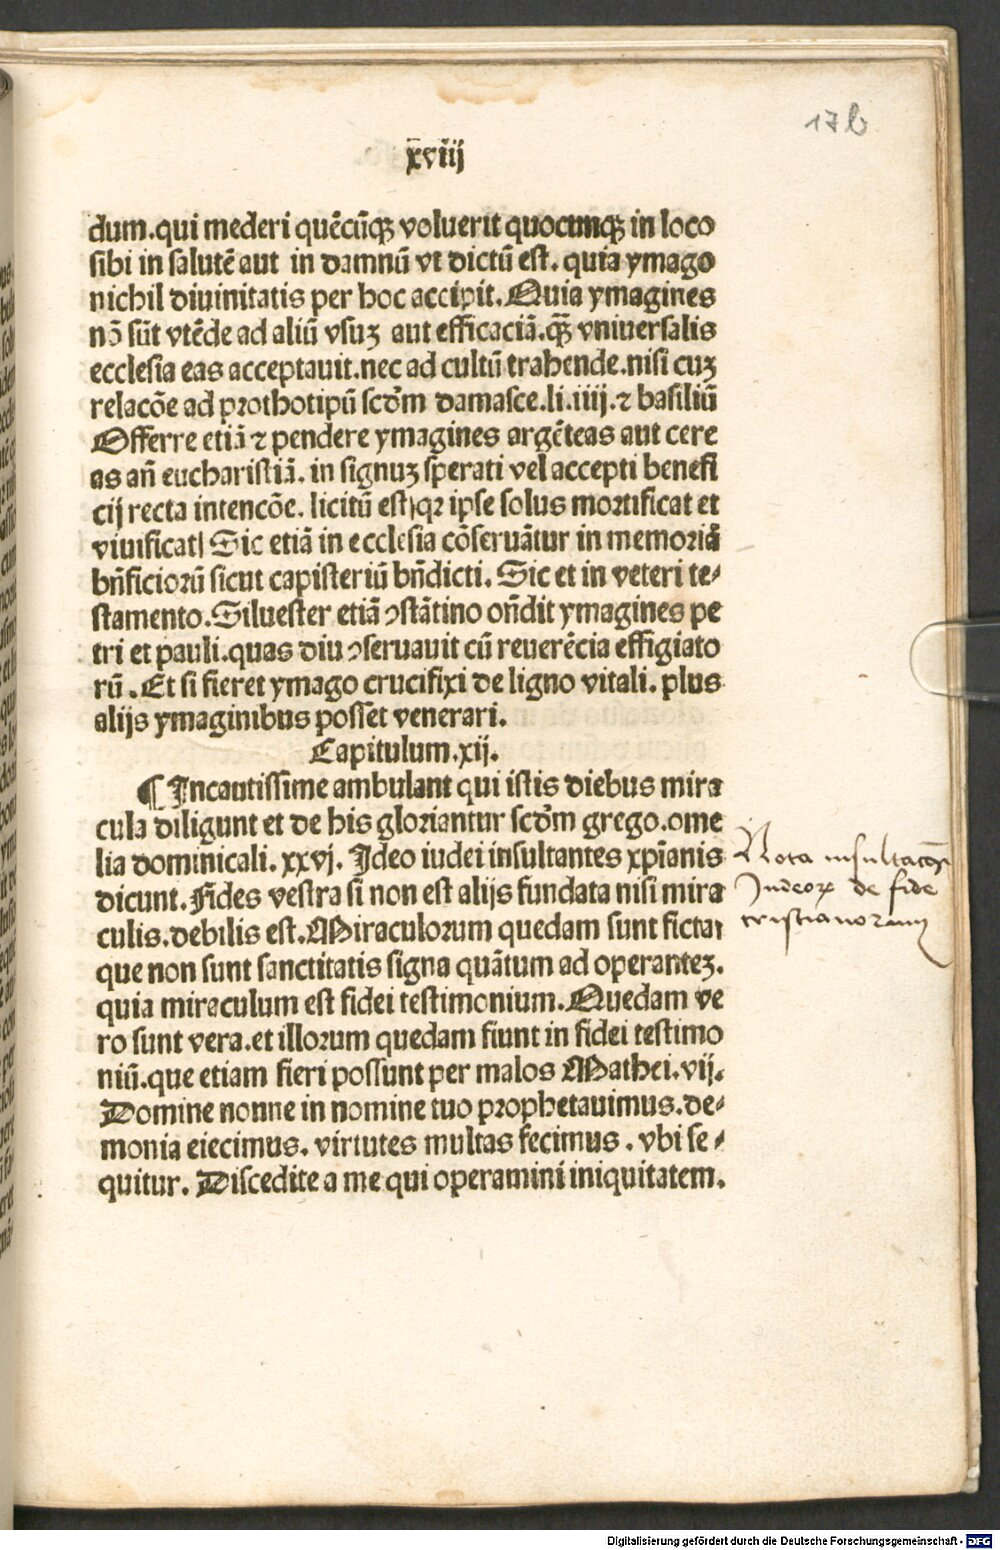 17b
xviij
dum.qui mederi quēcūqꝫ voluerit quocunqꝫ in loco
sibi in salutē aut in damnū vt dictū est. quia ymago
nichil diuinitatis per hoc accipit. Quia ymagines
nō sūt vtēde ad aliū vsuꝫ aut efficaciā.qꝫ̄ vniuersalis
ecclesia eas acceptauit.nec ad cultū trahende.nisi cuꝫ
relacōe ad prothotipū scd̄m damasce.li.iiij.⁊ basiliū
Offerre etiā ⁊ pendere ymagines argēteas aut cere
as an̄ eucharistiā. in signuꝫ sperati vel accepti benefi
cij recta intencōe. licitū est) qꝛ ipse solus mortificat et
viuificat) Sic etiā in ecclesia cōseruātur in memoriā
bn̄ficiorū sicut capisteriū bn̄dicti. Sic et in veteri te⸗
stamento. Siluester etiā ꝯstātino on̄dit ymagines pe
tri et pauli.quas diu ꝯseruauit cū reuerēcia effigiato
rū. Et si fieret ymago crucifixi de ligno vitali. plus
alijs ymaginibus posset venerari.
Capitulum.xij.
¶ Incautissime ambulant qui istis diebus mira
cula diligunt et de his gloriantur scd̄m grego.ome
lia dominicali. xxvj. Ideo iudei insultantes xp̄ianis
dicunt. Fides vestra si non est alijs fundata nisi mira
culis.debilis est. Miraculorum quedam sunt ficta⁊
que non sunt sanctitatis signa quātum ad operanteꝫ.
quia miraculum est fidei testimonium. Quedam ve
ro sunt vera.et illorum quedam fiunt in fidei testimo
niū.que etiam fieri possunt per malos Mathei.vij.
Domine nonne in nomine tuo prophetauimus.de⸗
monia eiecimus. virtutes multas fecimus. vbi se⸗
quitur. Discedite a me qui operamini iniquitatem.
Nota insultacōeꝫ
Judeoꝝ de fide
cristianorum
Digitalisierung gefördert durch die Deutsche Forschungsgemeinschaft - DFG